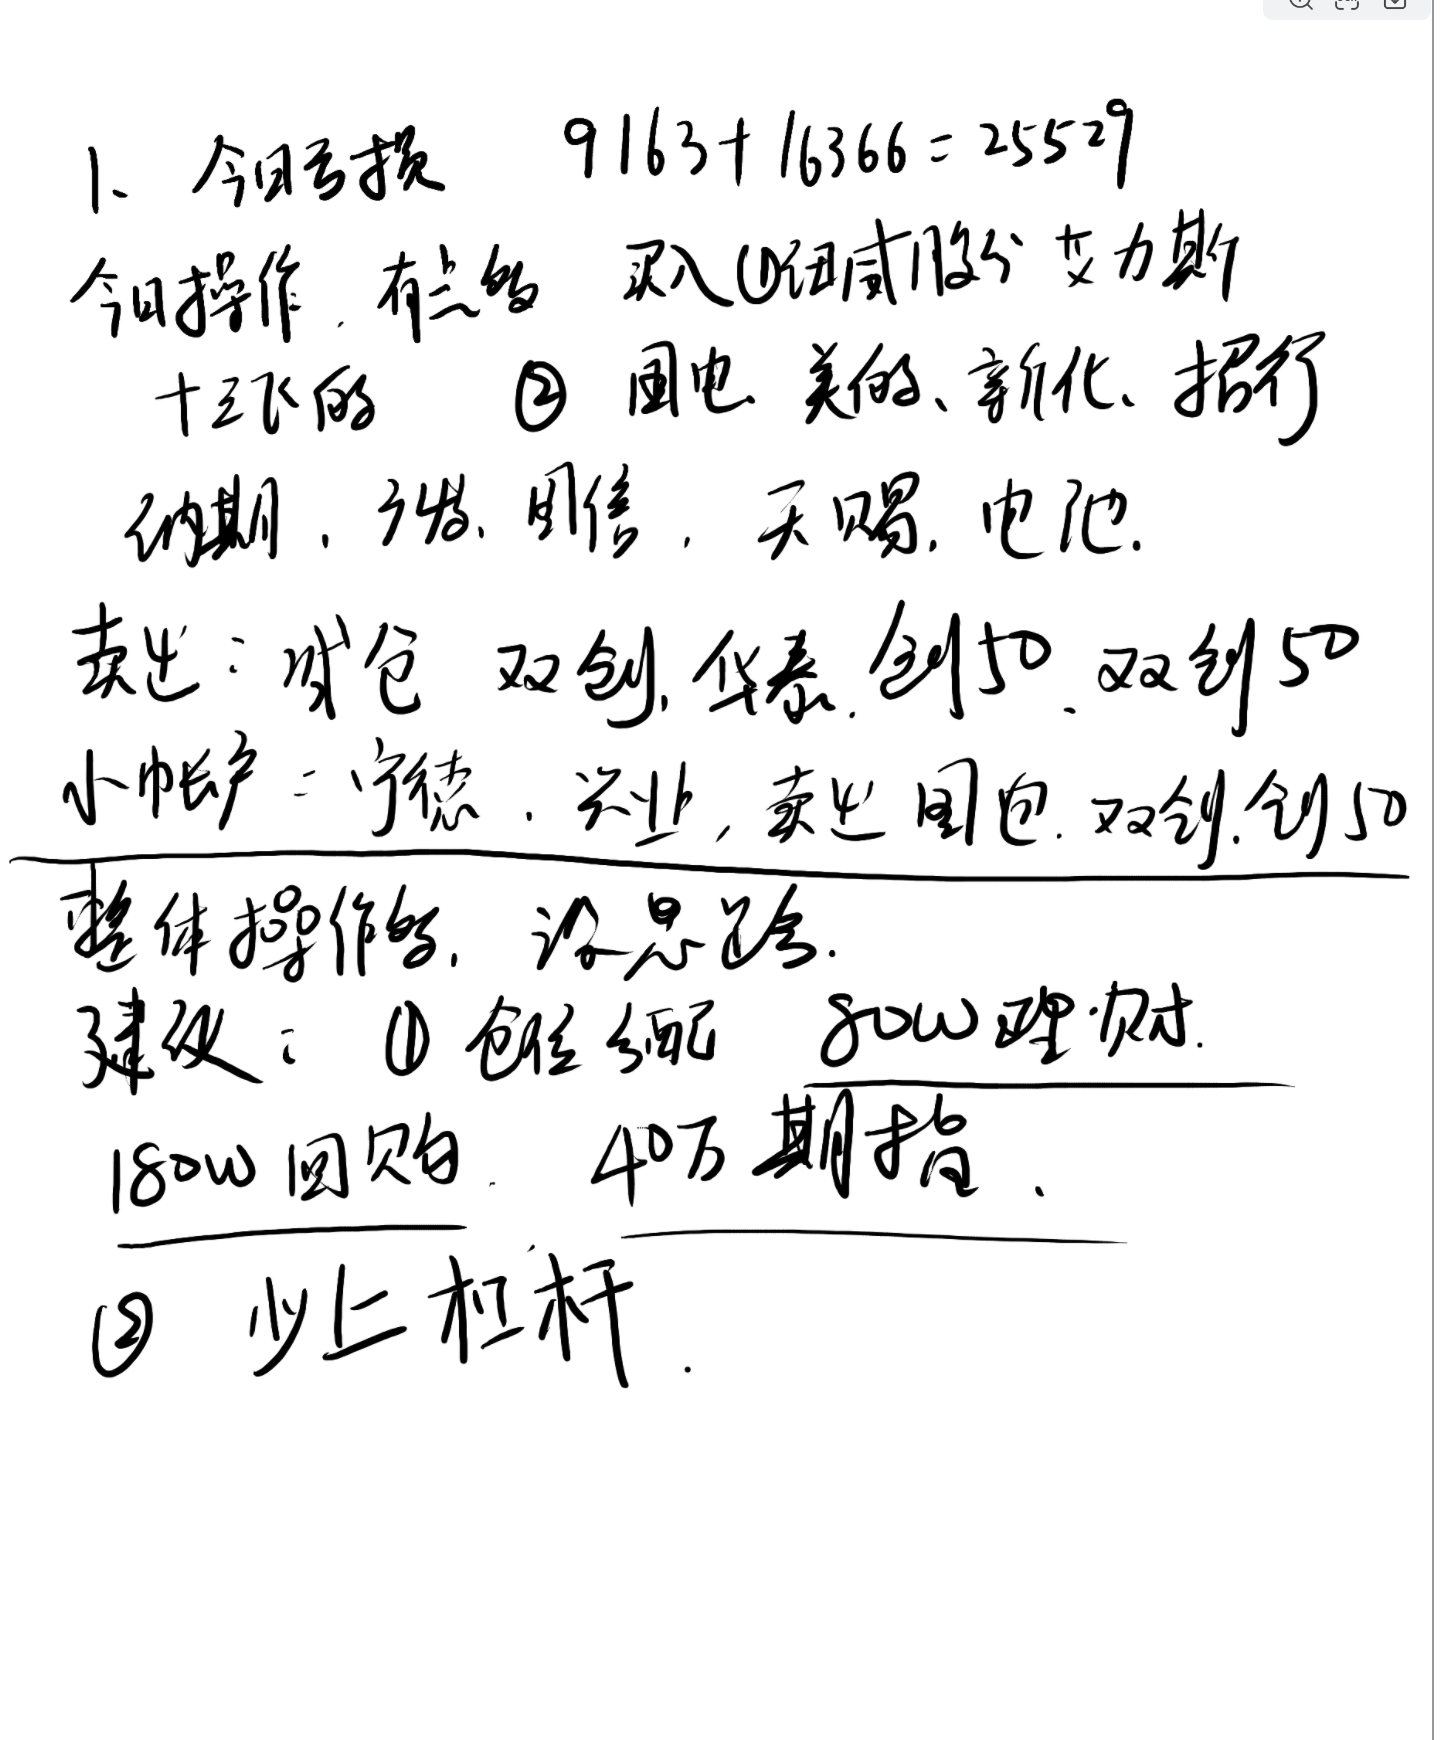 1、今日亏损 9163+16366=25529
今日操作. 有点 买入①纽威股份 艾力斯
② 国电. 美的、新化、招行
纳期. 广发、国信. 天赐. 电池.
卖出: 减仓 双创. 华泰. 创50、双创50
小帐户: 宁德. 兴业, 卖出国电. 双创. 创50
整体操作, 没思路.
建议: ①仓位分配 80W理财.
180W回购. 40万期指.
② 少上杠杆.